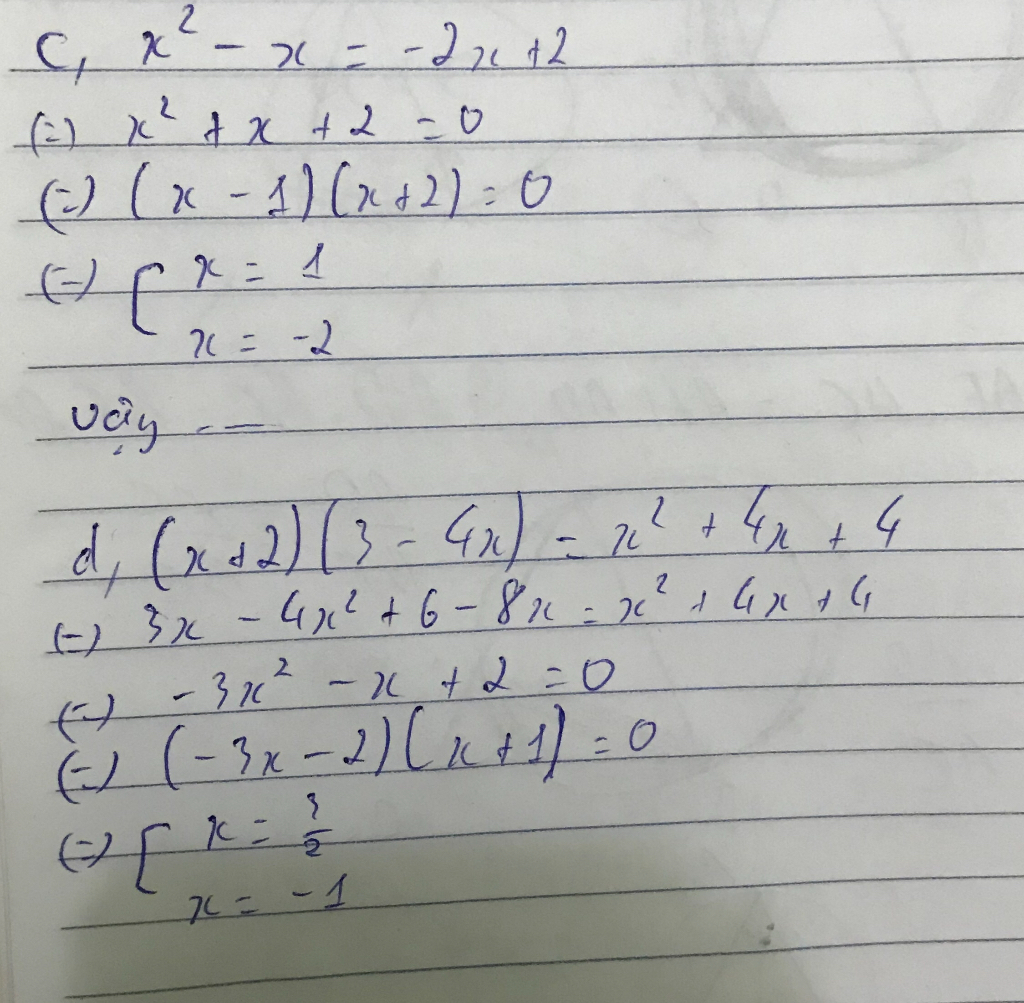 c, x² - x = -2x + 2
(=) x² + x + 2 = 0
(=) (x - 1)(x + 2) = 0
(=) [ x = 1
x = -2
vậy ---
d, (x + 2)(3 - 4x) = x² + 4x + 4
(=) 3x - 4x² + 6 - 8x = x² + 4x + 4
(=) -3x² - x + 2 = 0
(=) (-3x - 2)(x + 1) = 0
(=) [ x = 3/2
x = -1